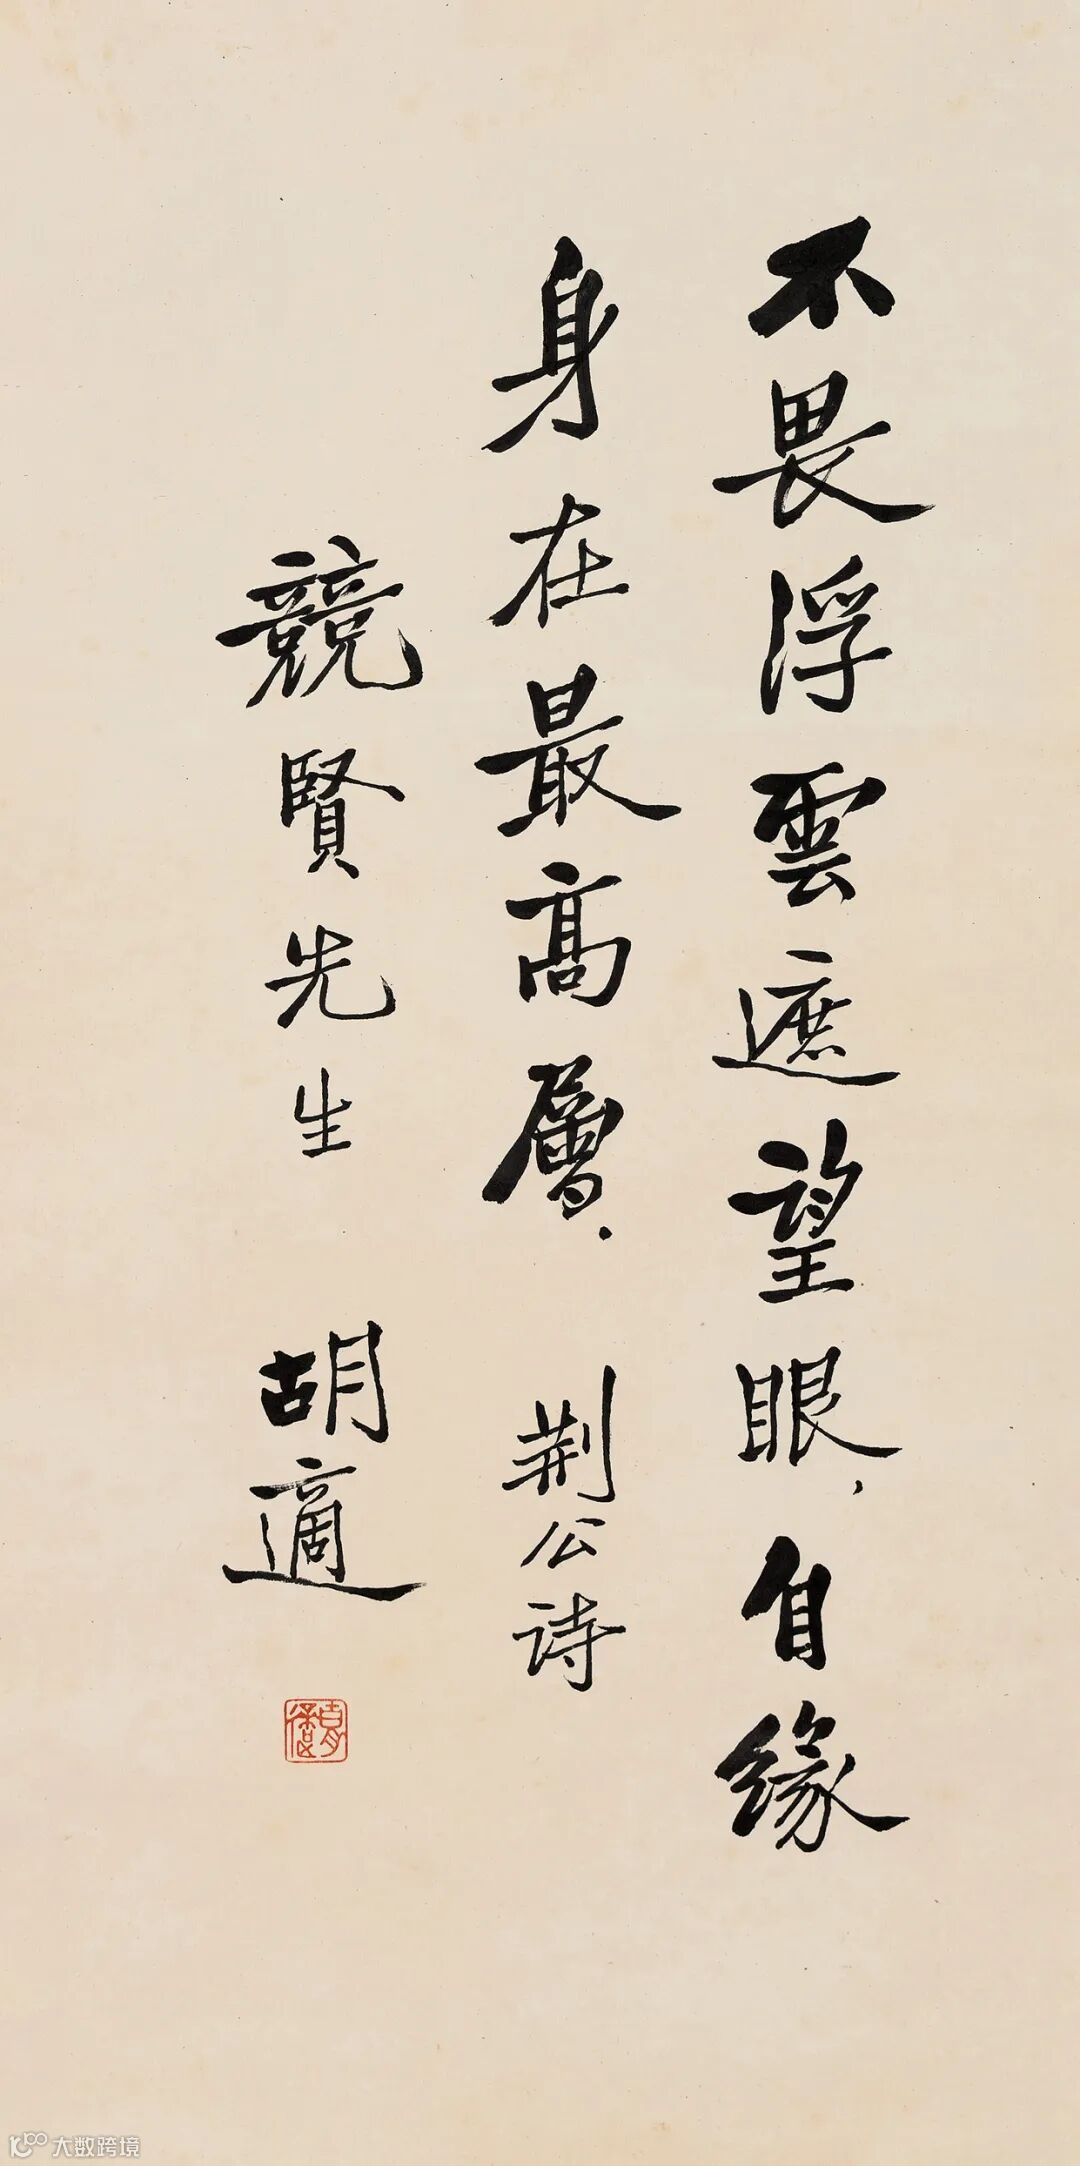 不畏浮雲遮望眼，自緣
身在最高層．荆公詩
競賢先生 胡適
大数跨境